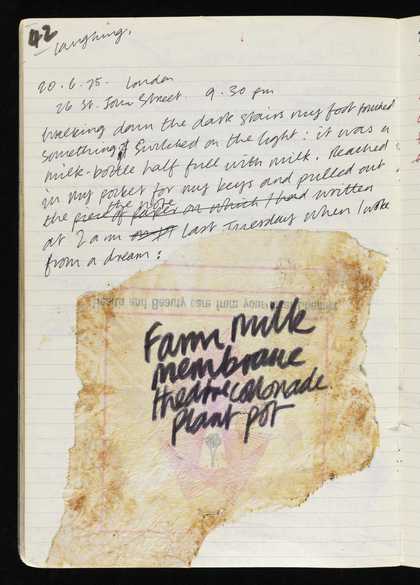 42
laughing.
20.6.75. London
26 St. John Street. 9.30 pm
Walking down the dark stairs my foot touched
something. I switched on the light: it was a
milk-bottle half full with milk. Reached
in my pocket for my keys and pulled out
the note
the piece of paper on which I had written
at 2 am last Tuesday when I woke
from a dream:
Health and Beauty care from your
Farm milk
membrane
colonade
plant pot